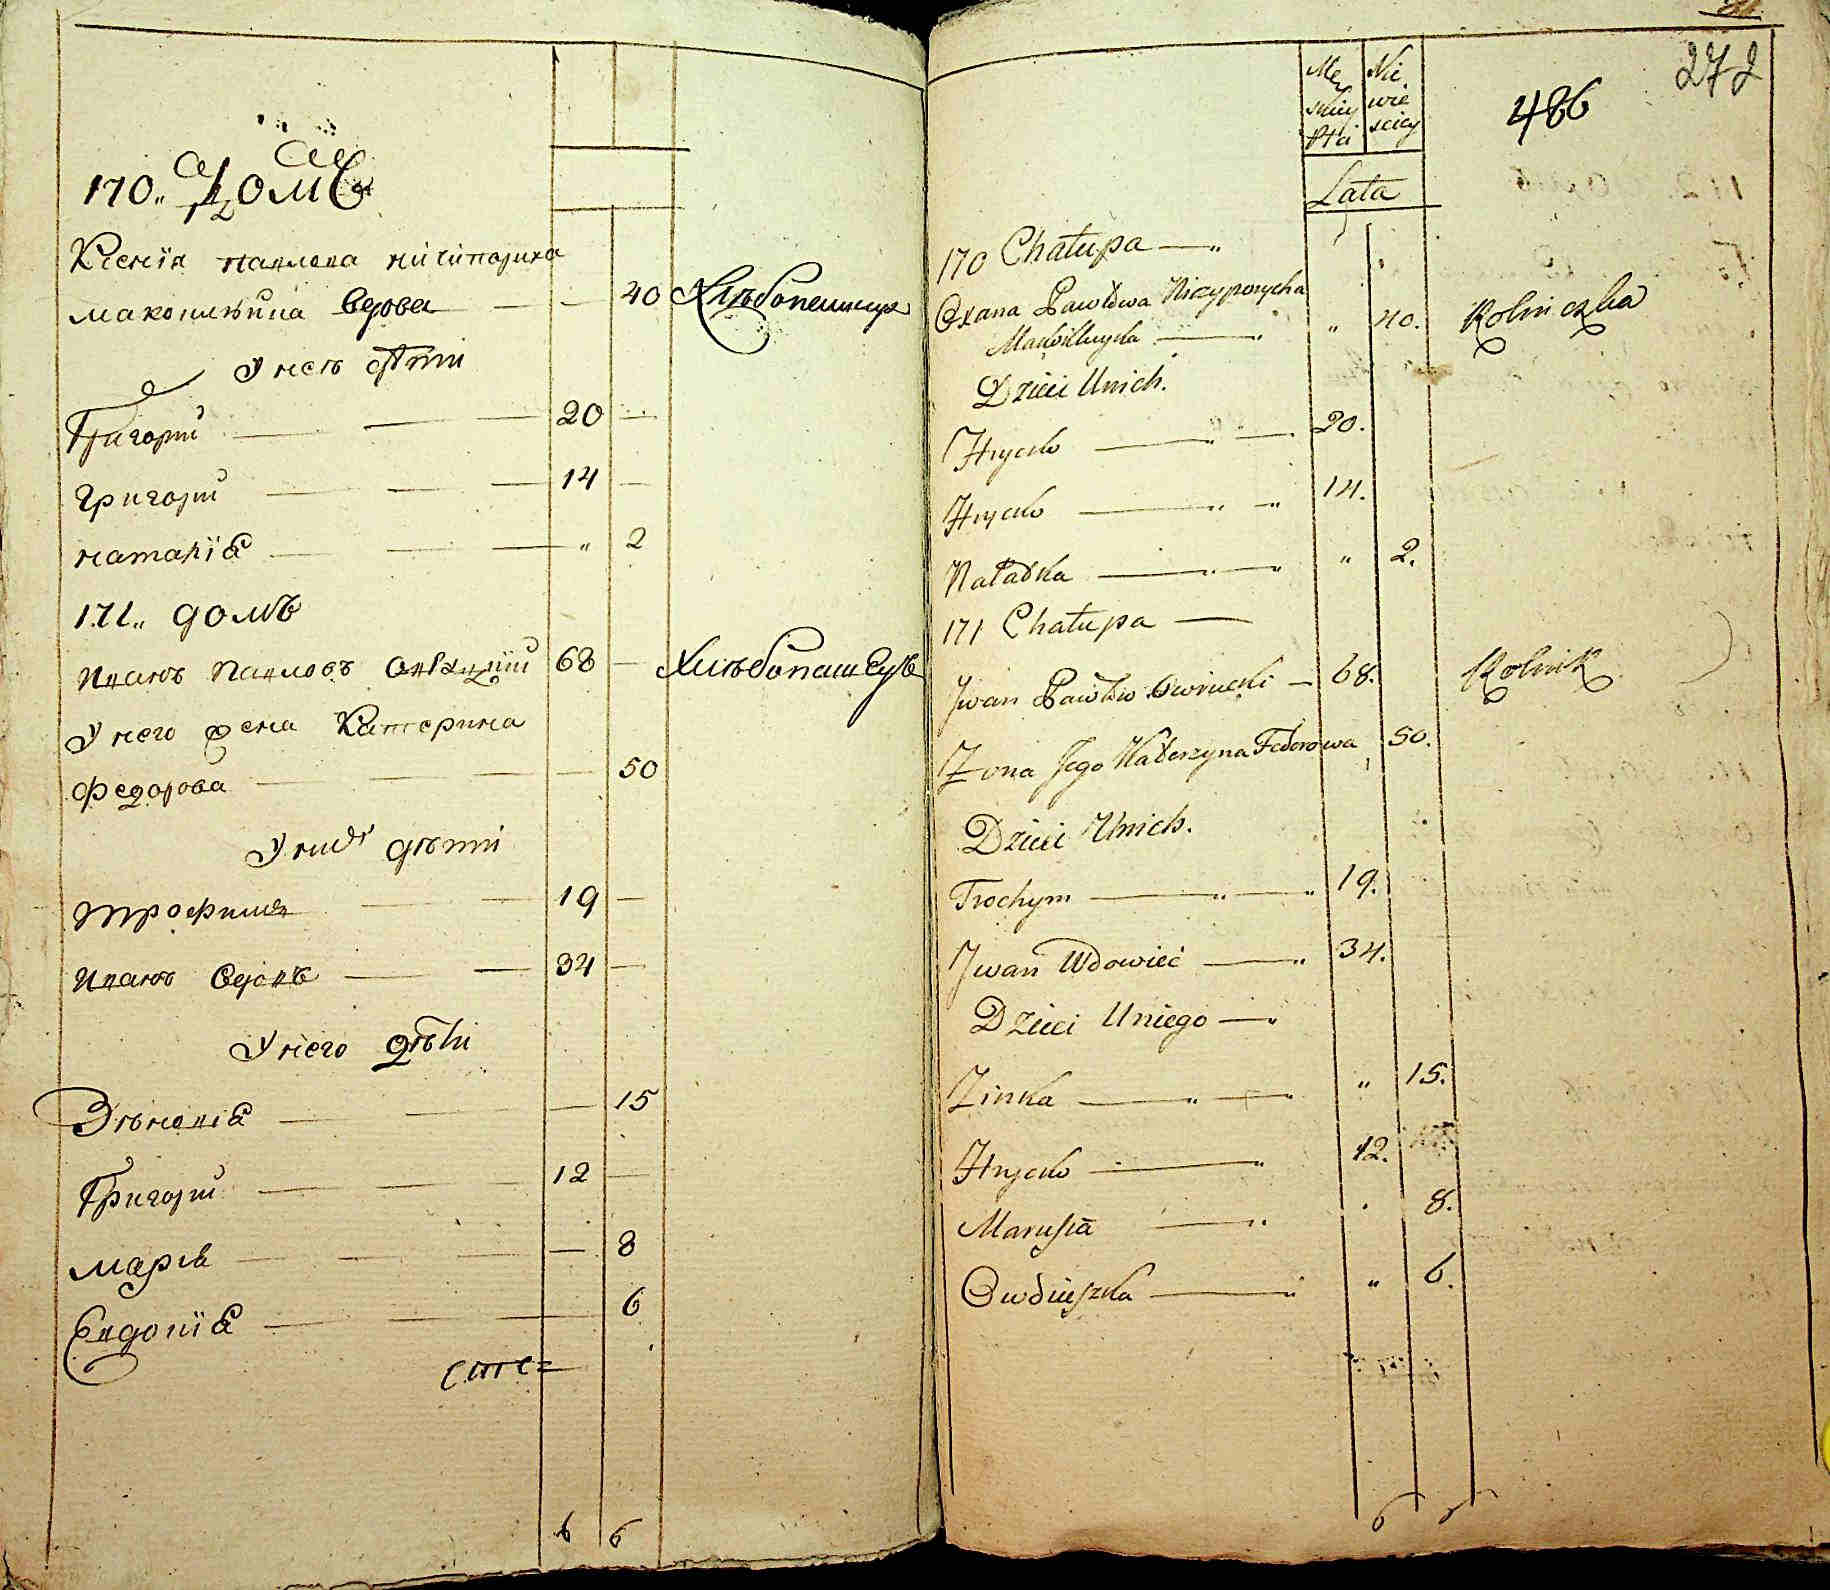 170„ Домъ
Ксенія павлова ничипориха
макопленна вдова — — 40 Хлѣбопашица
У нея дѣти
Григорій — — 20 —
Григорій — — 14 —
наталія — — „ 2
171„ домъ
Иванъ Павловъ 68 — Хлѣбопашецъ
У него жена Катерина
Федорова — — 50
У нихъ дѣти
трофимъ — — 19 —
Иванъ вдовъ — — 34 —
У него дѣти
Зѣновія — — 15
Григорій — — 12 —
марія — — 8
Евдокія — — 6
6 6
272
486
Męskiey Płci
Niewiesciey
Lata
170 Chałupa —
Oxana Pawłowa Niczyporycha
— „ 40. Rolniczka
Dzieci Unich.
Hrycko — 20.
Hrycko — 14.
Natałka — „ 2.
171 Chałupa —
Jwan Pawłow Owrucki — 68. Rolnik
Zona Jego Katerzyna Fedorowa 50.
Dzieci Unich.
Trochym — 19.
Jwan Wdowiec — 34.
Dzieci Uniego —
Zinka — „ 15.
Hrycko — 12.
Marusia — 8.
Owdiuszka — „ 6.
6